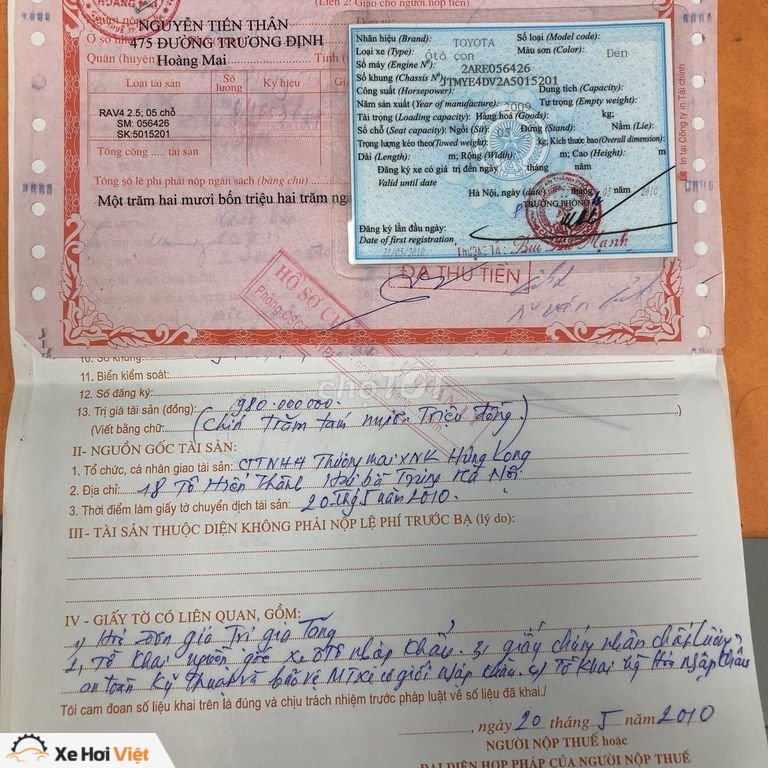 (Liên 2: Giao cho người nộp tiền)
HOÀNG MAI
NGUYỄN TIẾN THÂN
475 ĐƯỜNG TRƯƠNG ĐỊNH
Ô số nhà
Quận (huyện) Hoàng Mai Tỉnh
Loại tài sản Số lượng Ký hiệu
RAV4 2.5; 05 chỗ
SM: 056426
SK:5015201
Tổng cộng tài sản
Tổng số lệ phí phải nộp ngân sách (bằng chữ):
Một trăm hai mươi bốn triệu hai trăm
Nhãn hiệu (Brand): TOYOTA Số loại (Model code):
Loại xe (Type): Ôtô con Màu sơn (Color): Đen
Số máy (Engine Nº): 2ARE056426
Số khung (Chassis Nº): JTMYE4DV2A5015201
Công suất (Horsepower): Dung tích (Capacity):
Năm sản xuất (Year of manufacture): 2009 Tự trọng (Empty weight):
Tải trọng (Loading capacity): Hàng hoá (Goods): kg
Số chỗ (Seat capacity): Ngồi (Sit): 05 Đứng (Stand): Nằm (Lie):
Trọng lượng kéo theo (Towed weight): kg; Kích thước bao (Overall dimension):
Dài (Length): m; Rộng (Width): m; Cao (Height): m
Đăng ký xe có giá trị đến ngày tháng năm
Valid until date
Hà Nội, ngày (date) tháng 05 năm 2010
TRƯỞNG PHÒNG
Đăng ký lần đầu ngày:
Date of first registration 21/05/2010
THƯỢNG TÁ: Bùi Mạnh
In tại Công ty In Tài chính
ĐÃ THU TIỀN
HỒ SƠ
10. Số khung:
11. Biển kiểm soát:
12. Số đăng ký:
13. Trị giá tài sản (đồng): 980.000.000
(Viết bằng chữ: (Chín trăm tám mươi triệu đồng)
II- NGUỒN GỐC TÀI SẢN:
1. Tổ chức, cá nhân giao tài sản: CTTNHH Thương mại XNK Hùng Long
2. Địa chỉ: 18 Tô Hiến Thành Hai bà Trưng Hà Nội
3. Thời điểm làm giấy tờ chuyển dịch tài sản: 20 thg 5 năm 2010.
III- TÀI SẢN THUỘC DIỆN KHÔNG PHẢI NỘP LỆ PHÍ TRƯỚC BẠ (lý do):
IV - GIẤY TỜ CÓ LIÊN QUAN, GỒM:
1, Hóa đơn giá trị gia tăng
2, Tờ khai nguồn gốc xe ôtô nhập khẩu. 3, giấy chứng nhận chất lượng
an toàn kỹ thuật và bảo vệ MT xe cơ giới nhập khẩu. 4, Tờ khai nhập khẩu
Tôi cam đoan số liệu khai trên là đúng và chịu trách nhiệm trước pháp luật về số liệu đã khai./
, ngày 20 tháng 5 năm 2010
NGƯỜI NỘP THUẾ hoặc
ĐẠI DIỆN HỢP PHÁP CỦA NGƯỜI NỘP THUẾ
choTỐT
Xe Hơi Việt